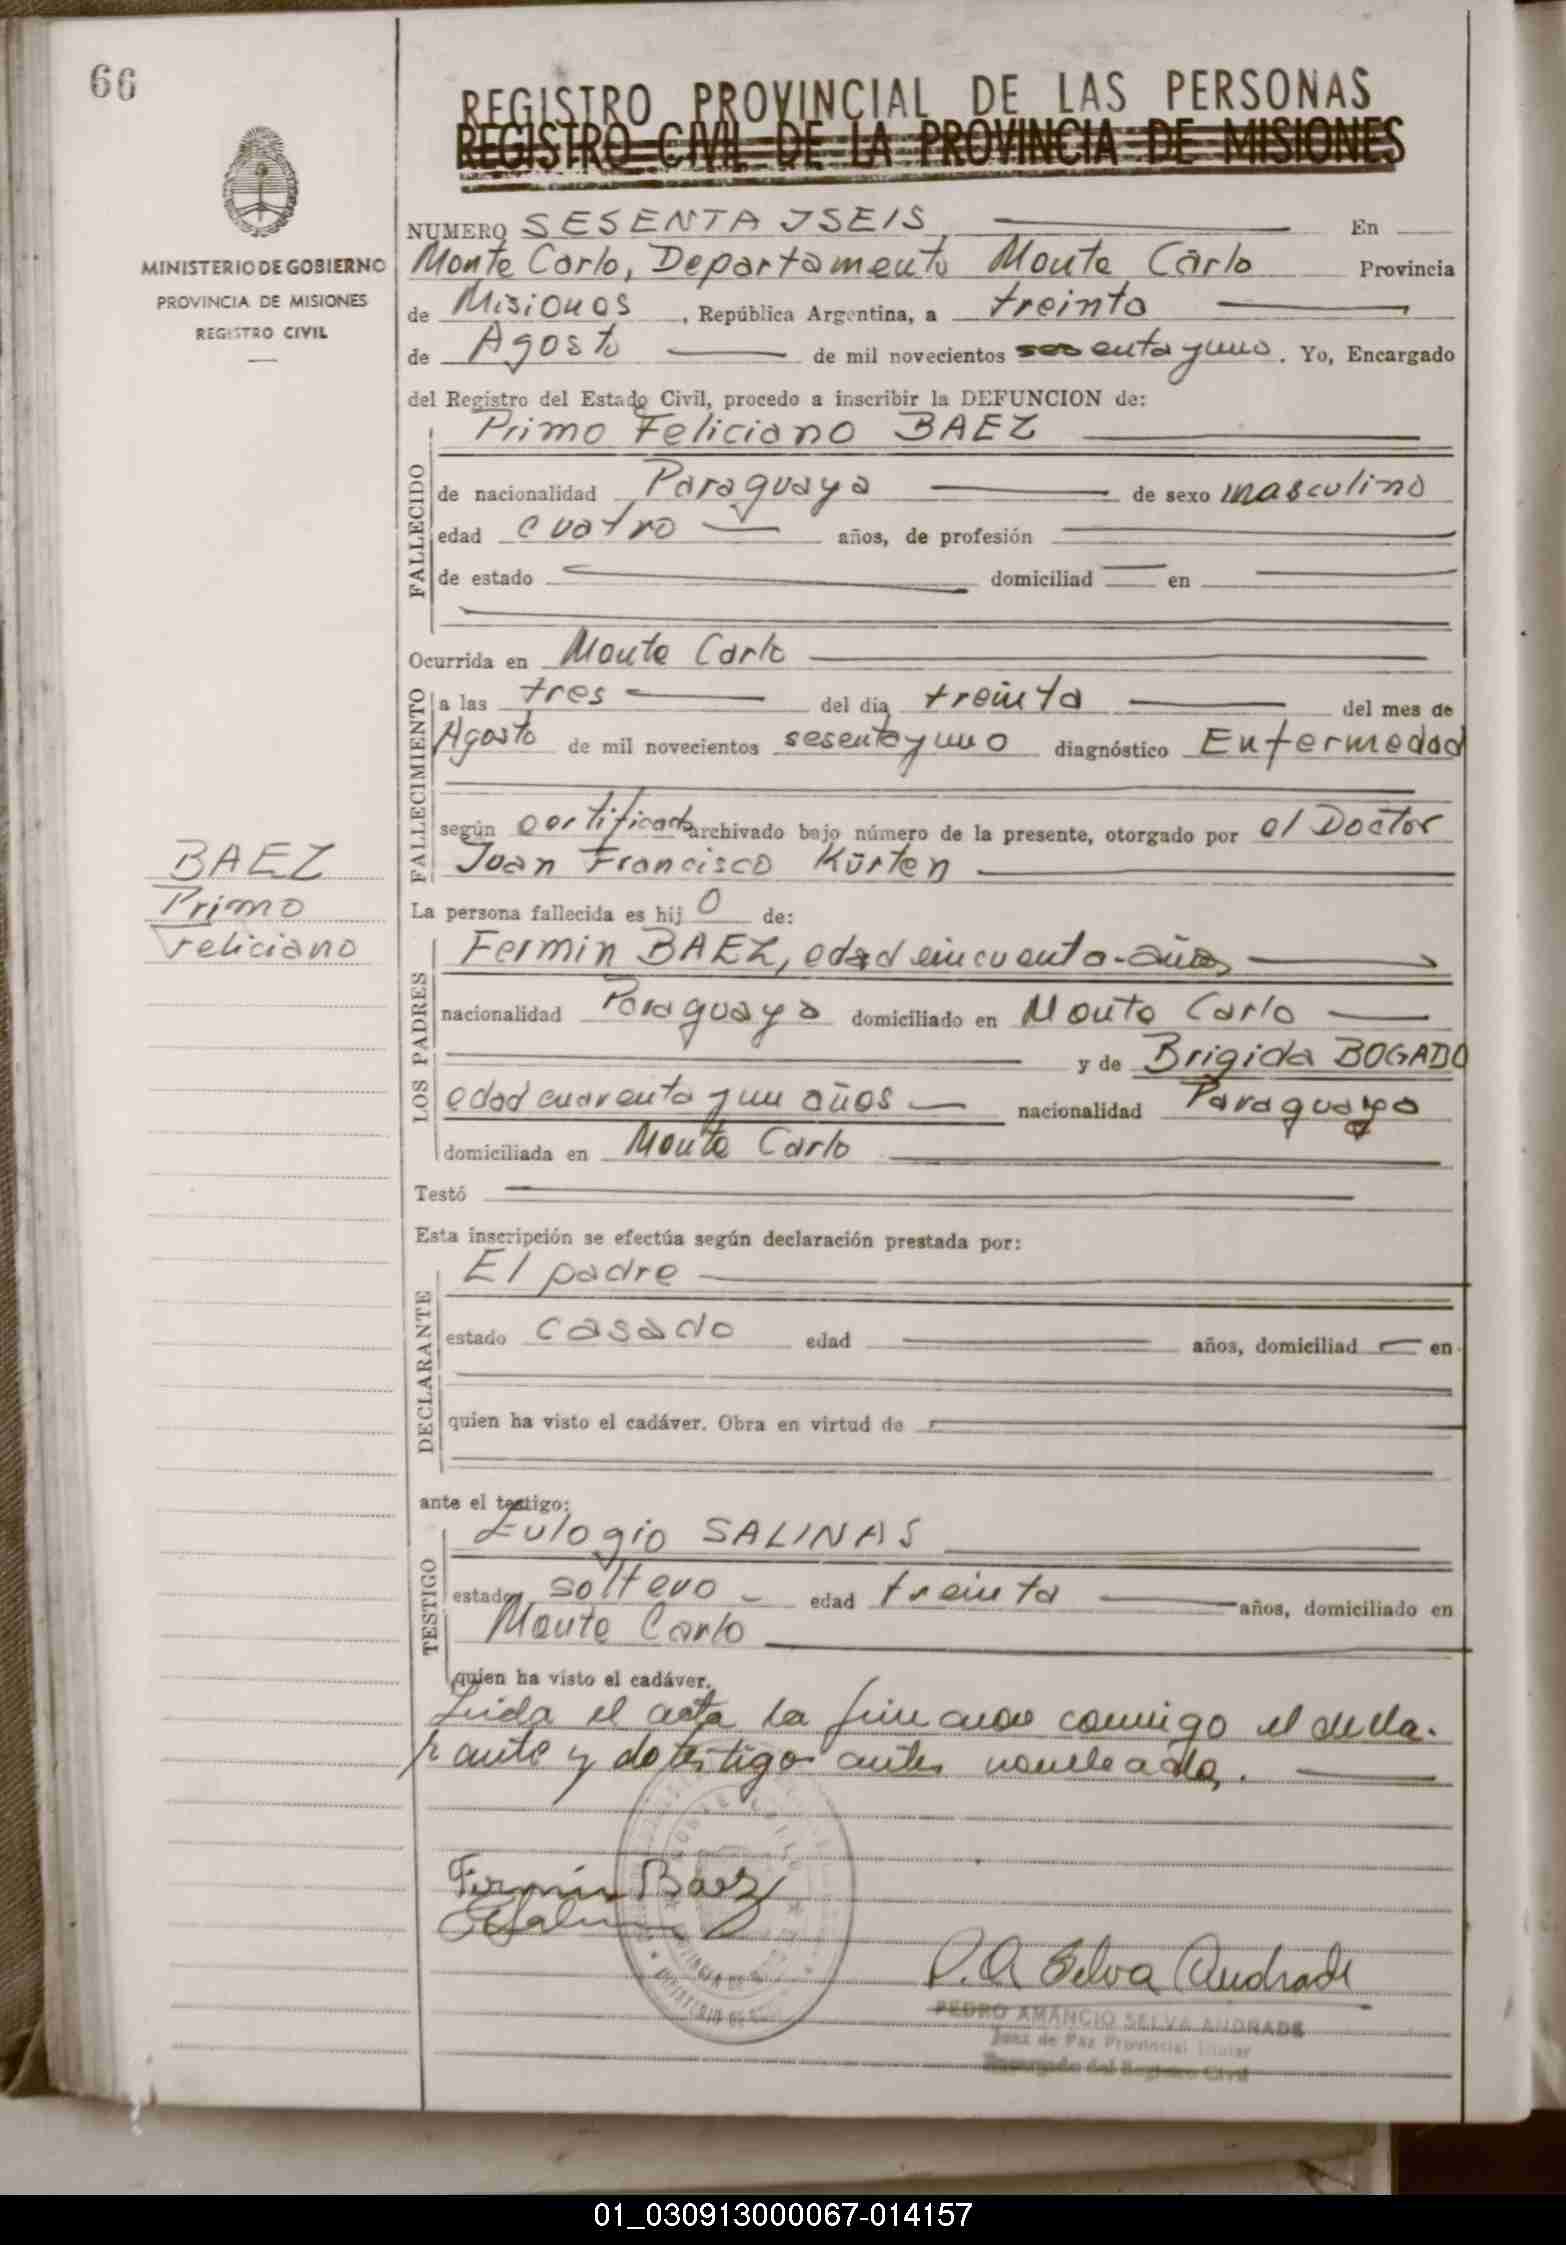 66
REGISTRO PROVINCIAL DE LAS PERSONAS
REGISTRO CIVIL DE LA PROVINCIA DE MISIONES
MINISTERIO DE GOBIERNO
PROVINCIA DE MISIONES
REGISTRO CIVIL
NUMERO SESENTA YSEIS En
Monte Carlo, Departamento Monte Carlo Provincia
de Misiones, República Argentina, a treinta
de Agosto de mil novecientos sesenta y uno. Yo, Encargado
del Registro del Estado Civil, procedo a inscribir la DEFUNCION de:
FALLECIDO
Primo Feliciano BAEZ
de nacionalidad Paraguaya de sexo masculino
edad cuatro años, de profesión
de estado domiciliad en
Ocurrida en Monte Carlo
FALLECIMIENTO
a las tres del dia treinta del mes de
Agosto de mil novecientos sesenta y uno diagnóstico Enfermedad
según certificado archivado bajo número de la presente, otorgado por el Doctor
Juan Francisco Kürten
BAEZ
Primo
Feliciano
La persona fallecida es hij o de:
LOS PADRES
Fermin BAEZ, edad cincuenta años
nacionalidad Paraguaya domiciliado en Monte Carlo
y de Brigida BOGADO
edad cuarenta y un años nacionalidad Paraguaya
domiciliada en Monte Carlo
Testó
Esta inscripción se efectúa según declaración prestada por:
DECLARANTE
El padre
estado casado edad años, domiciliad en
quien ha visto el cadáver. Obra en virtud de
ante el testigo:
TESTIGO
Eulogio SALINAS
estado soltero edad treinta años, domiciliado en
Monte Carlo
quien ha visto el cadáver.
Leida el acta la firmaron conmigo el decla-
rante y el testigo antes nombrado.
Fermin Baez
P. A. Selva Andrade
PEDRO AMANCIO SELVA ANDRADE
Juez de Paz Provincial Titular
Encargado del Registro Civil
01_030913000067-014157